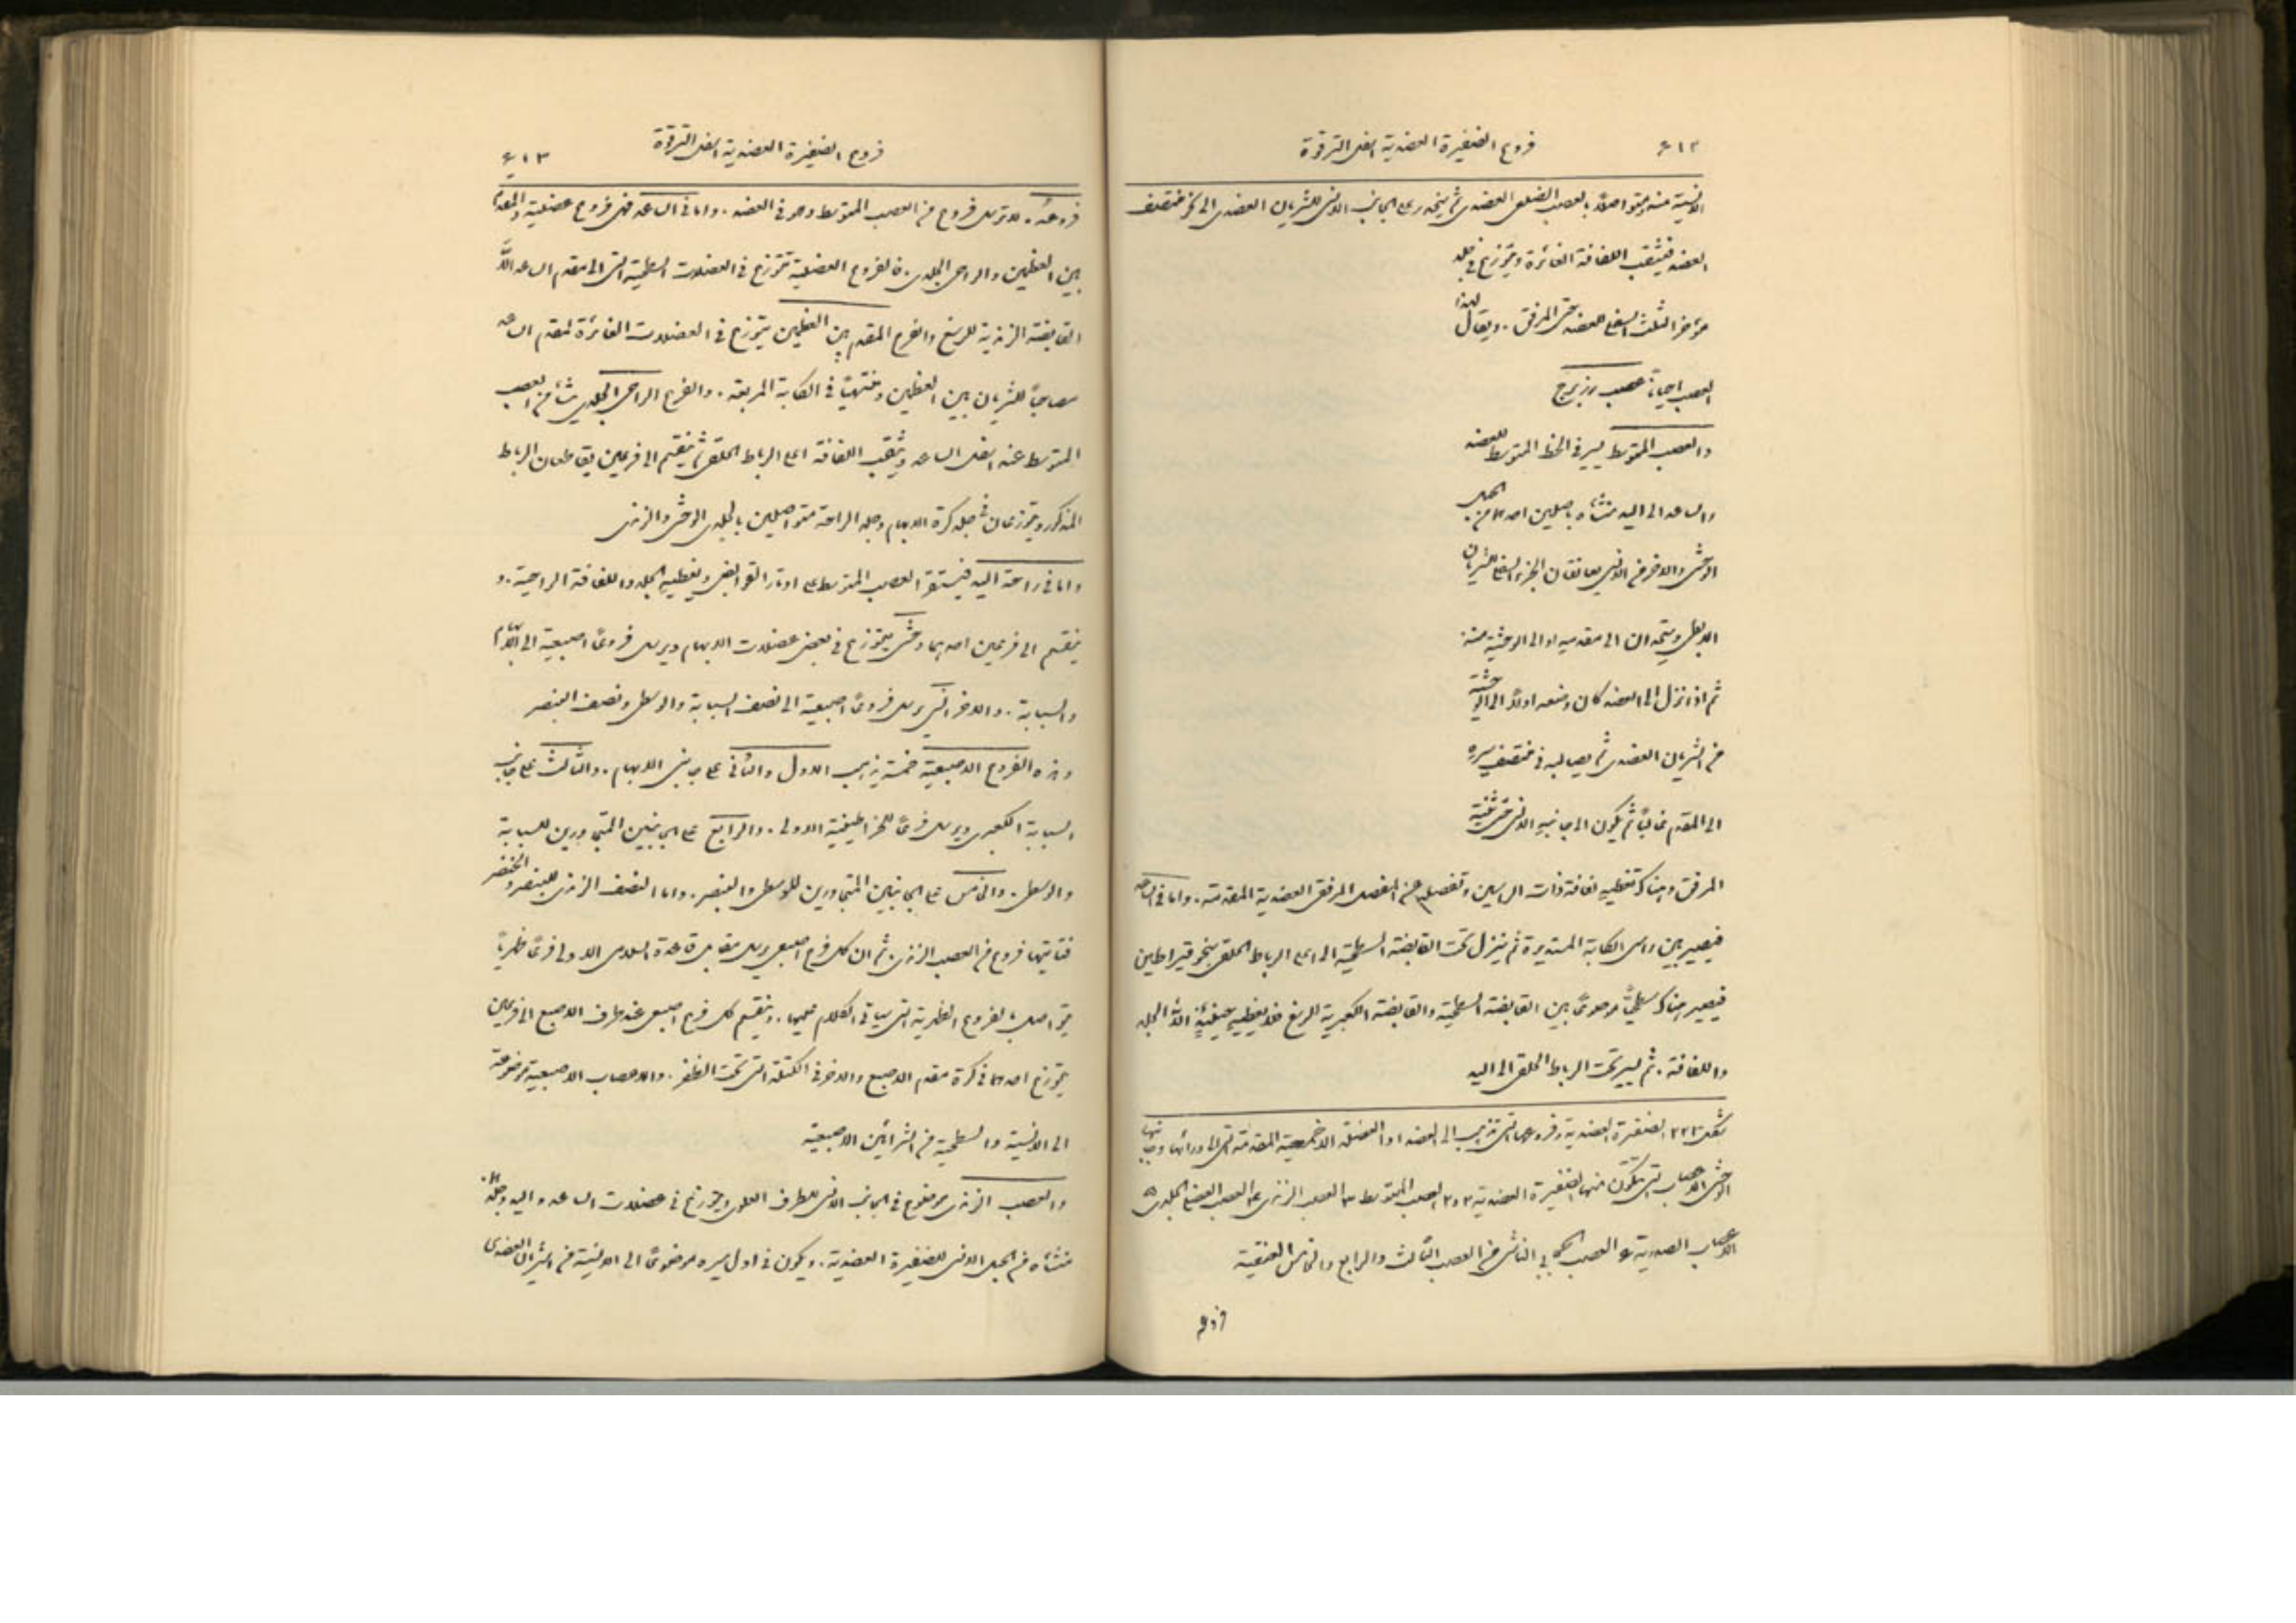 ٤١٢
فروع الضفيرة العضدية اسفل الترقوة
الانسية منه ومتواصلاً بالعصب الضلعي العضدي ثم ينحدر على الجانب الانسي للشريان العضدي الى نحو منتصف
العضد فيثقب اللفافة الغائرة ويتوزع في جلد
مؤخر الثلث السفلي للعضد حتى المرفق . ويقال لهذا
العصب احياناً عصب رزبرج
والعصب المتوسط يسير في الخط المتوسط للعضد
والساعد الى اليد منشاه باصلين احدهما من الحبل
الوحشي والاخر من الانسي يعانقان الجزء السفلي للشريان
الابطي ويتحدان الى مقدمه او الى الوحشية منه
ثم اذا نزل الى العضد كان وضعه اولاً الى الوحشية
من الشريان العضدي ثم يصالبه في منتصف سيره
الى المقدم غالباً ثم يكون الى جانبه الانسي حتى ثنية
المرفق وهناك تغطيه لفافة ذات الراسين وتفصله عن المفصل المرفقي العضدية المقدمة . واما في الساعد
فيصير بين راسي الكابة المستديرة ثم ينزل تحت القابضة السطحية الى اعلى الرباط الحلقي بنحو قيراطين
فيصير هناك سطحياً موضوعاً بين القابضة السطحية والقابضة الكعبرية للرسغ فلا يغطيه حينئذٍ الا الجلد
واللفافة . ثم يسير تحت الرباط الحلقي الى اليد
شكل ٢٢٣ الضفيرة العضدية وفروعها التي تذهب الى العضد
الوحشي الاعصاب التي تتكون منها الضفيرة العضدية ٢و٢ العصب المتوسط ٣ العصب الزندي ٤ العصب العضلي الجلدي ٥
الاعصاب الصدرية ٦ العصب الحجابي الناشي من العصب الثالث والرابع والخامس العنقية
فروع
فروع الضفيرة العضدية اسفل الترقوة
٤١٣
فروعه . لا ترسل فروع من العصب المتوسط وهو في العضد . واما في الساعد فهي فروع عضلية والمقدم
بين العظمين والراحي الجلدي . فالفروع العضلية تتوزع في العضلات السطحية التي الى مقدم الساعد الا
القابضة الزندية للرسغ والفرع المقدم بين العظمين يتوزع في العضلات الغائرة لمقدم الساعد
مصاحباً للشريان بين العظمين ومنتهياً في الكابة المربعة . والفرع الراحي الجلدي ينشأ من العصب
المتوسط عند اسفل الساعد ويثقب اللفافة اعلى الرباط الحلقي ثم ينقسم الى فرعين يقاطعان الرباط
المذكور ويتوزعان في جلد كرة الابهام وجلد الراحة متواصلين بالجلدي الوحشي والزندي
واما في راحة اليد فيستقر العصب المتوسط على اوتار القوابض ويغطيه الجلد واللفافة الراحية . و
ينقسم الى فرعين احدهما وحشي يتوزع في بعض عضلات الابهام ويرسل فروعاً اصبعية الى الابهام
والسبابة . والاخر انسي يرسل فروعاً اصبعية الى نصف السبابة والوسطى ونصف البنصر
وهذه الفروع الاصبعية خمسة يذهب الاول والثاني على جانبي الابهام . والثالث على جانب
السبابة الكعبري ويرسل فرعاً للخراطينية الاولى . والرابع على الجانبين المتجاورين للسبابة
والوسطى . والخامس على الجانبين المتجاورين للوسطى والبنصر . واما النصف الزندي للبنصر والخنصر
فتاتيها فروع من العصب الزندي . ثم ان كل فرع اصبعي يرسل مقابل قاعدة السلامى الاولى فرعاً ظهرياً
يتواصل بالفروع الظهرية التي سياتي الكلام عليها . وينقسم كل فرع اصبعي عند طرف الاصبع الى فرعين
يتوزع احدهما في كرة مقدم الاصبع والاخر في الكتلة التي تحت الظفر . والاعصاب الاصبعية موضوعة
الى الانسية والسطحية من الشرائين الاصبعية
والعصب الزندي موضوع في الجانب الانسي للطرف العلوي ويتوزع في عضلات الساعد واليد وجلدها .
منشاه من الحبل الانسي للضفيرة العضدية . ويكون في اول سيره موضوعاً الى الانسية من الشريان العضدي